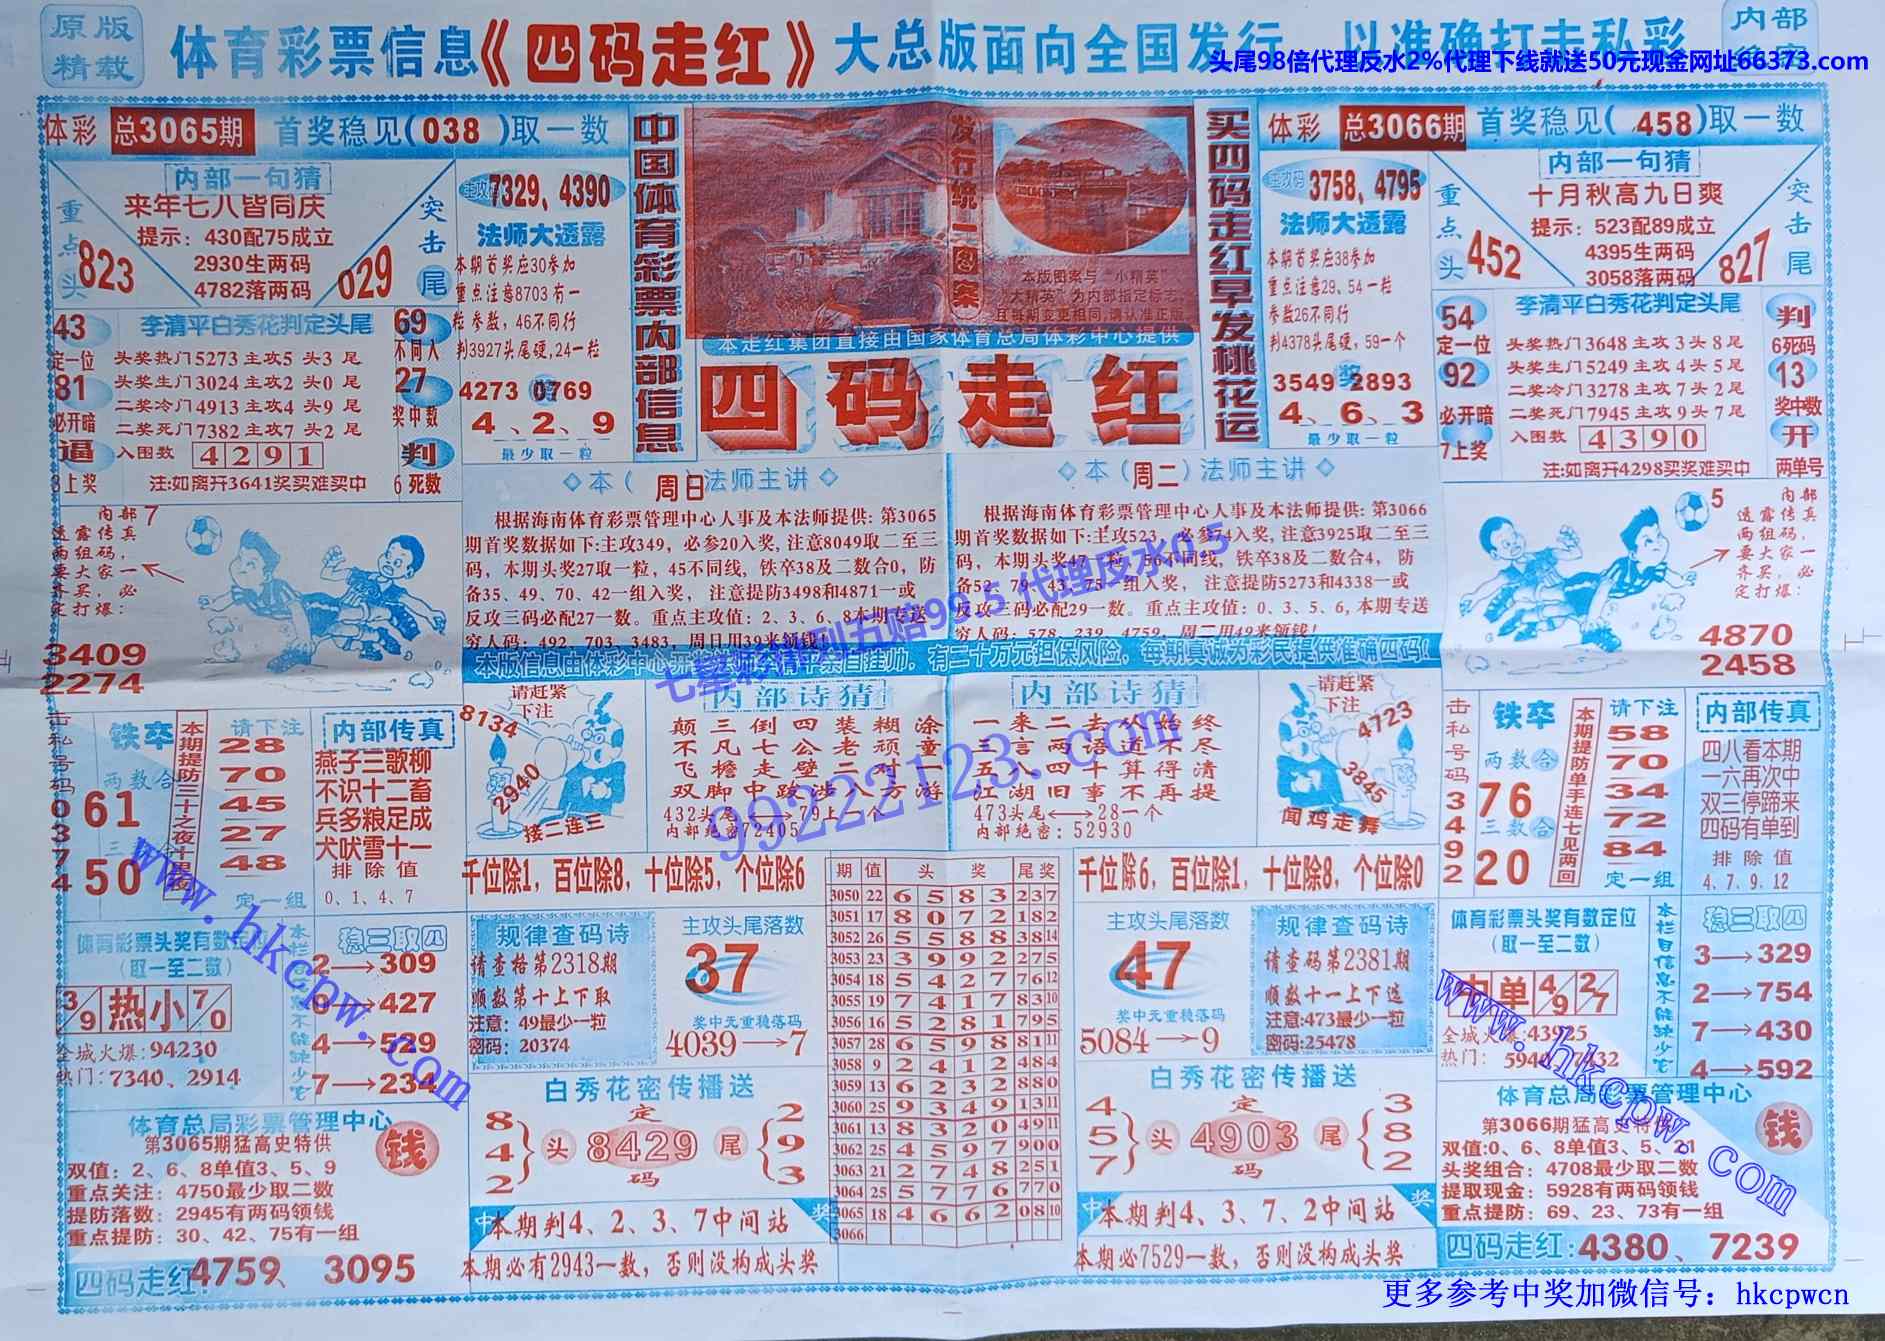 原版
精载
体育彩票信息《四码走红》大总版面向全国发行 以准确打击私彩
内部
头尾98倍代理反水2%代理下线就送50元现金网址66373.com
体彩 总3065期 首奖稳见(038)取一数
内部一句猜
来年七八皆同庆
提示：430配75成立
2930生两码
4782落两码
重点头
823
突击尾
029
主攻码7329, 4390
法师大透露
本期首奖应30参加
重点注意8703有一
粒参数，46不同行
判3927头尾硬,24一粒
4273 0769
4、2、9
最少取一粒
43
定一位
81
必开暗
逼
3上奖
李清平白秀花判定头尾
头奖热门5273主攻5头3尾
头奖生门3024主攻2头0尾
二奖冷门4913主攻4头9尾
二奖死门7382主攻7头2尾
入图数 4291
注:如离开3641奖买难买中
69
不同入
27
奖中数
判
6死数
中国体育彩票内部信息
发行统一图案
本版图案与“小精英”
“大精英”为内部指定标志，
且每期变更相同,请认准正版
本走红集团直接由国家体育总局体彩中心提供
四码走红
买四码走红早发桃花运
体彩 总3066期 首奖稳见(458)取一数
内部一句猜
十月秋高九日爽
提示：523配89成立
4395生两码
3058落两码
重点头
452
突击尾
827
主攻码3758, 4795
法师大透露
本期首奖应38参加
重点注意29、54一粒
参数26不同行
判4378头尾硬,59一个
3549 2893
4、6、3
最少取一粒
54
定一位
92
必开暗
7上奖
李清平白秀花判定头尾
头奖热门3648主攻3头8尾
头奖生门5249主攻4头5尾
二奖冷门3278主攻7头2尾
二奖死门7945主攻9头7尾
入图数 4390
注:如离开4298买奖难买中
判
6死码
13
奖中数
开
两单号
内部
透露传真
两组码，
要大家一
齐买，必
定打爆：
7
3409
2274
◇本（周日）法师主讲◇
根据海南体育彩票管理中心人事及本法师提供：第3065
期首奖数据如下:主攻349，必参20入奖,注意8049取二至三
码，本期头奖27取一粒，45不同线,铁卒38及二数合0，防
备35、49、70、42一组入奖，注意提防3498和4871一或
反攻三码必配27一数。重点主攻值：2、3、6、8本期专送
穷人码：492、703、3483，周日用39来领钱！
◇本（周二）法师主讲◇
根据海南体育彩票管理中心人事及本法师提供：第3066
期首奖数据如下:主攻523，必参74入奖,注意3925取二至三
码，本期头奖47一粒，56不同线，铁卒38及二数合4，防
备52、79、43、75一组入奖，注意提防5273和4338一或
反攻三码必配29一数。重点主攻值：0、3、5、6,本期专送
穷人码：578、239、4759，周二用49来领钱！
5
内部
透露传真
两组码，
要大家一
齐买，必
定打爆：
4870
2458
七星彩排列五赔99.5 代理反水0.5
击私号码0374
铁卒
两数合
61
三数合
50
本期提防三十之夜十里夜
请下注
28
70
45
27
48
定一组
内部传真
燕子三歌柳
不识十二畜
兵多粮足成
犬吠雪十一
排除值
0、1、4、7
请赶紧
下注
8134
2940
接二连三
内部诗猜
颠三倒四装糊涂
不凡七公老顽童
飞檐走壁二对一
双脚中跋涉八方游
432头尾⟷79上一个
内部绝密72405
内部诗猜
一来二去从始终
三言两语道不尽
五八四十算得清
江湖旧事不再提
473头尾⟷28一个
内部绝密：52930
请赶紧
下注
4723
3845
闻鸡走舞
击私号码3492
铁卒
两数合
76
三数合
20
本期提防单手连七见两回
请下注
58
70
34
72
84
定一组
内部传真
四八看本期
一六再次中
双三停蹄来
四码有单到
排除值
4、7、9、12
99222123.com
千位除1，百位除8，十位除5，个位除6
千位除6，百位除1，十位除8，个位除0
体育彩票头奖有数定位
(取一至二数)
3/9 热 小 7/0
全城火爆:94230
热门：7340、2914
稳三取四
2→309
0→427
4→529
7→234
规律查码诗
请查格第2318期
顺数第十上下取
注意：49最少一粒
密码：20374
主攻头尾落数
37
奖中无重稳落码
4039→7
期 值 头 奖 尾奖
3050 22 6 5 8 3 2 3 7
3051 17 8 0 7 2 1 8 2
3052 26 5 5 8 8 3 8 14
3053 23 3 9 9 2 2 7 5
3054 18 5 4 2 7 7 6 12
3055 19 7 4 1 7 8 3 10
3056 16 5 2 8 1 7 9 5
3057 28 6 5 9 8 8 1 11
3058 9 2 4 1 2 4 8 4
3059 13 6 2 3 2 8 8 0
3060 25 9 3 4 9 1 3 11
3061 13 8 3 2 0 4 9 11
3062 25 4 5 9 7 9 0 0
3063 21 2 7 4 8 2 5 1
3064 25 5 7 7 6 7 7 0
3065 18 4 6 6 2 0 8 10
3066
主攻头尾落数
47
奖中无重稳落码
5084→9
规律查码诗
请查码第2381期
顺数十一上下选
注意:473最少一粒
密码:25478
体育彩票头奖有数定位
(取一至二数)
中 单 4/9 2/7
全城火爆:43925
热门：
本栏目信息不能缺少它
稳三取四
3→329
2→754
7→430
4→592
www.hkcpw.com
www.hkcpw.com
体育总局彩票管理中心
第3065期猛高史特供
钱
双值：2、6、8单值3、5、9
重点关注：4750最少取二数
提防落数：2945有两码领钱
重点提防：30、42、75有一组
四码走红:4759、3095
白秀花密传播送
8 4 2
头
定
8429
码
尾
2 9 3
中
本期判4、2、3、7中间站
奖
本期必有2943一数，否则没构成头奖
白秀花密传播送
4 5 7
头
定
4903
码
尾
3 8 2
中
本期判4、3、7、2中间站
奖
本期必7529一数，否则没构成头奖
体育总局彩票管理中心
第3066期猛高史特供
钱
双值:0、6、8单值3、5、1
头奖组合：4708最少取二数
提取现金：5928有两码领钱
重点提防：69、23、73有一组
四码走红:4380、7239
更多参考中奖加微信号：hkcpwcn